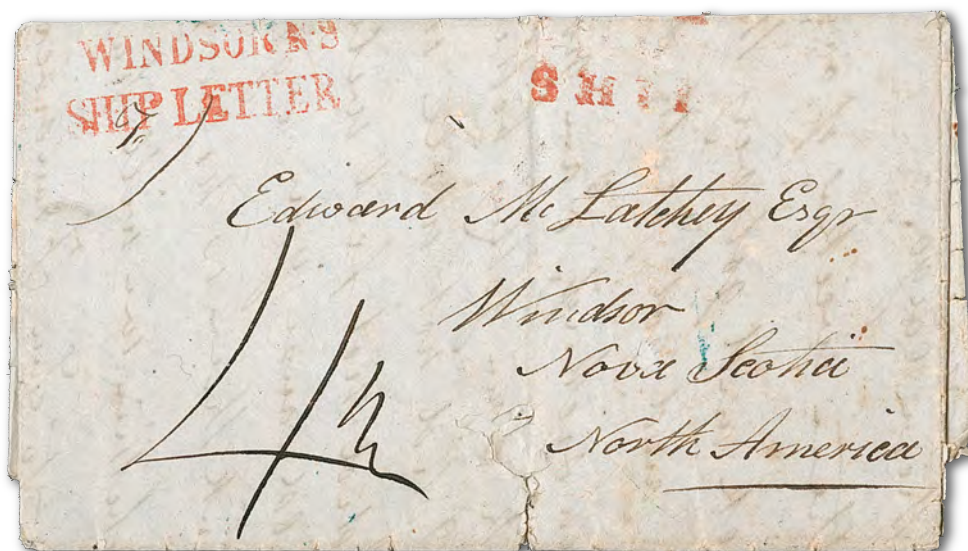 WINDSOR N.S
SHIP LETTER
SHIP
Edward McLatchey Esqr
Windsor
Nova Scotia
North America